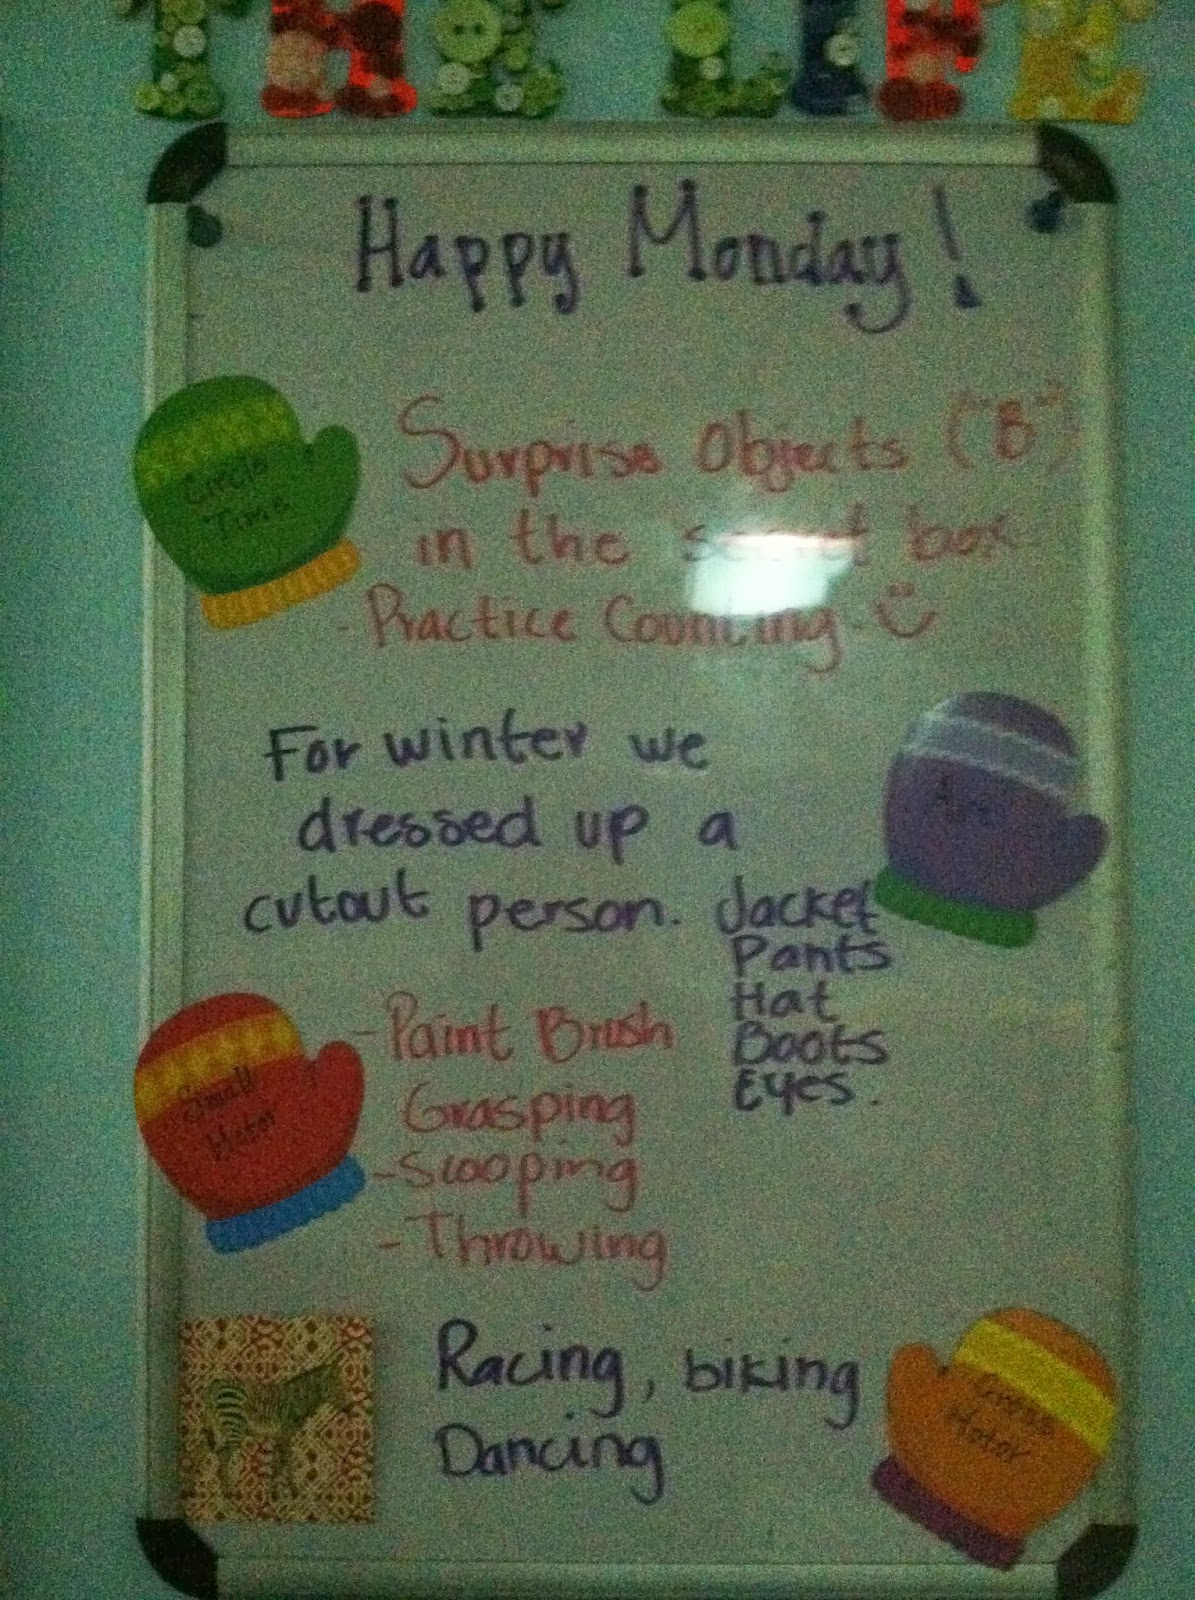 THE LIFE
Happy Monday!
Circle
Time
Surprise Objects ("B")
in the secret box
- Practice Counting.
For winter we
dressed up a
cutout person.
Art
Jacket
Pants
Hat
Boots
Eyes.
Small
Motor
- Paint Brush
Grasping
- Scooping
- Throwing
Racing, biking
Dancing
Gross
Motor